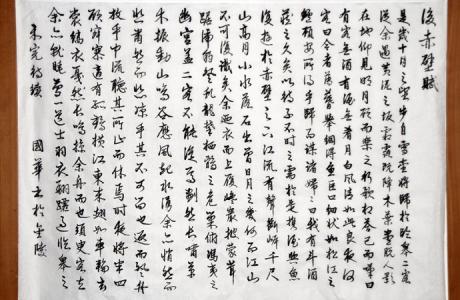 後赤壁賦
是歲十月之望步自雪堂將歸於臨皋二客
從余過黃泥之坂霜露既降木葉盡脫人影
在地仰見明月顧而樂之行歌相答已而嘆曰
有客無酒有酒無肴月白風清如此良夜何
客曰今者薄暮舉網得魚巨口細狀如松江之
鱸顧安所得乎歸而謀諸婦曰我有斗酒
藏之久矣以待子不時之需於是攜酒與魚
復遊於赤壁之下江流有聲斷岸千尺
山高月小水落石出曾日月之幾何而江山
不可復識矣余乃攝衣而上履巉巖披蒙茸
踞虎豹登虬龍攀栖鶻之危巢俯馮夷之
幽宮蓋二客不能從焉劃然長嘯草
木振動山鳴谷應風起水湧余亦悄然而
悲肅然而恐凜乎其不可留也返而登舟
放乎中流聽其所止而休焉時夜將半四
顧寂寥適有孤鶴橫江東來翅如車輪玄
裳縞衣戛然長鳴掠余舟而西也須臾客去
余亦就睡夢一道士羽衣翩躚過臨皋之
未完待續 國華書於金陵